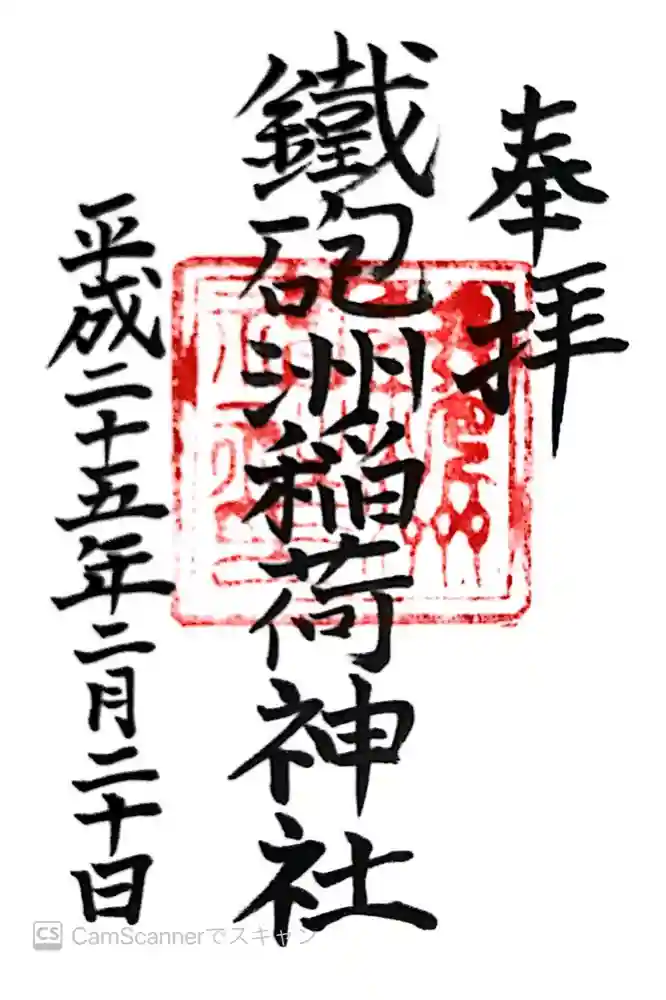 奉拝
鐵砲洲稲荷神社
平成二十五年二月二十日
CS CamScannerでスキャン